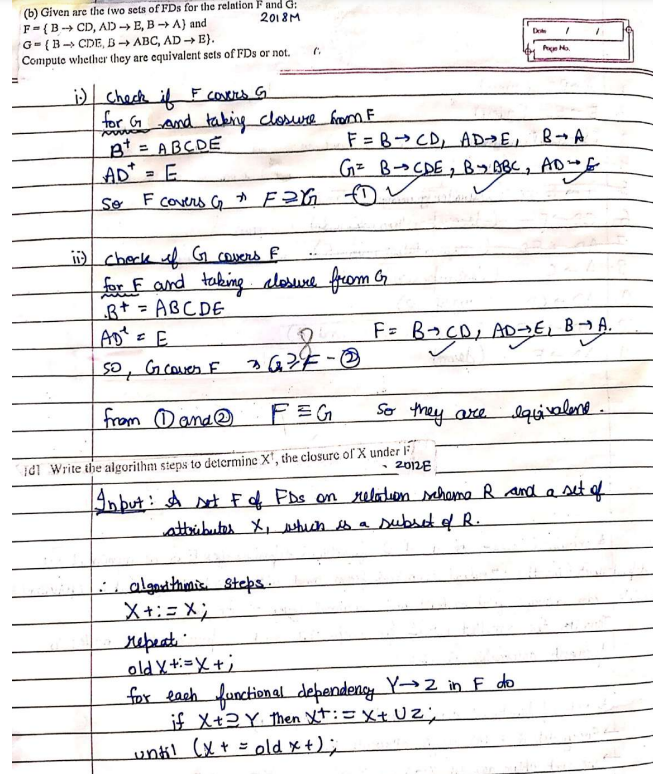 (b) Given are the two sets of FDs for the relation F and G:
2018M
F = { B → CD, AD → E, B → A} and
G = { B → CDE, B → ABC, AD → E}.
Compute whether they are equivalent sets of FDs or not.
Date / /
Page No.
i.) check if F covers G
for G and taking closure from F
B+ = ABCDE
F = B → CD, AD→E, B→A
AD+ = E
G = B→CDE, B→ABC, AD→E
So F covers G ⇒ F⊇G -①
ii) check if G covers F
for F and taking closure from G
B+ = ABCDE
AD+ = E
F = B→CD, AD→E, B→A.
so, G covers F ⇒ G⊇F -②
from ① and ② F ≡ G so they are equivalent.
[d] Write the algorithm steps to determine X+, the closure of X under F
- 2012E
Input: A set F of FDs on relation schema R and a set of
attributes X, which is a subset of R.
∴ algorithmic steps.
X+:= X;
repeat
old X+:=X+;
for each functional dependency Y→Z in F do
if X+⊇Y then X+:= X+ U Z;
until (X+ = old X+);